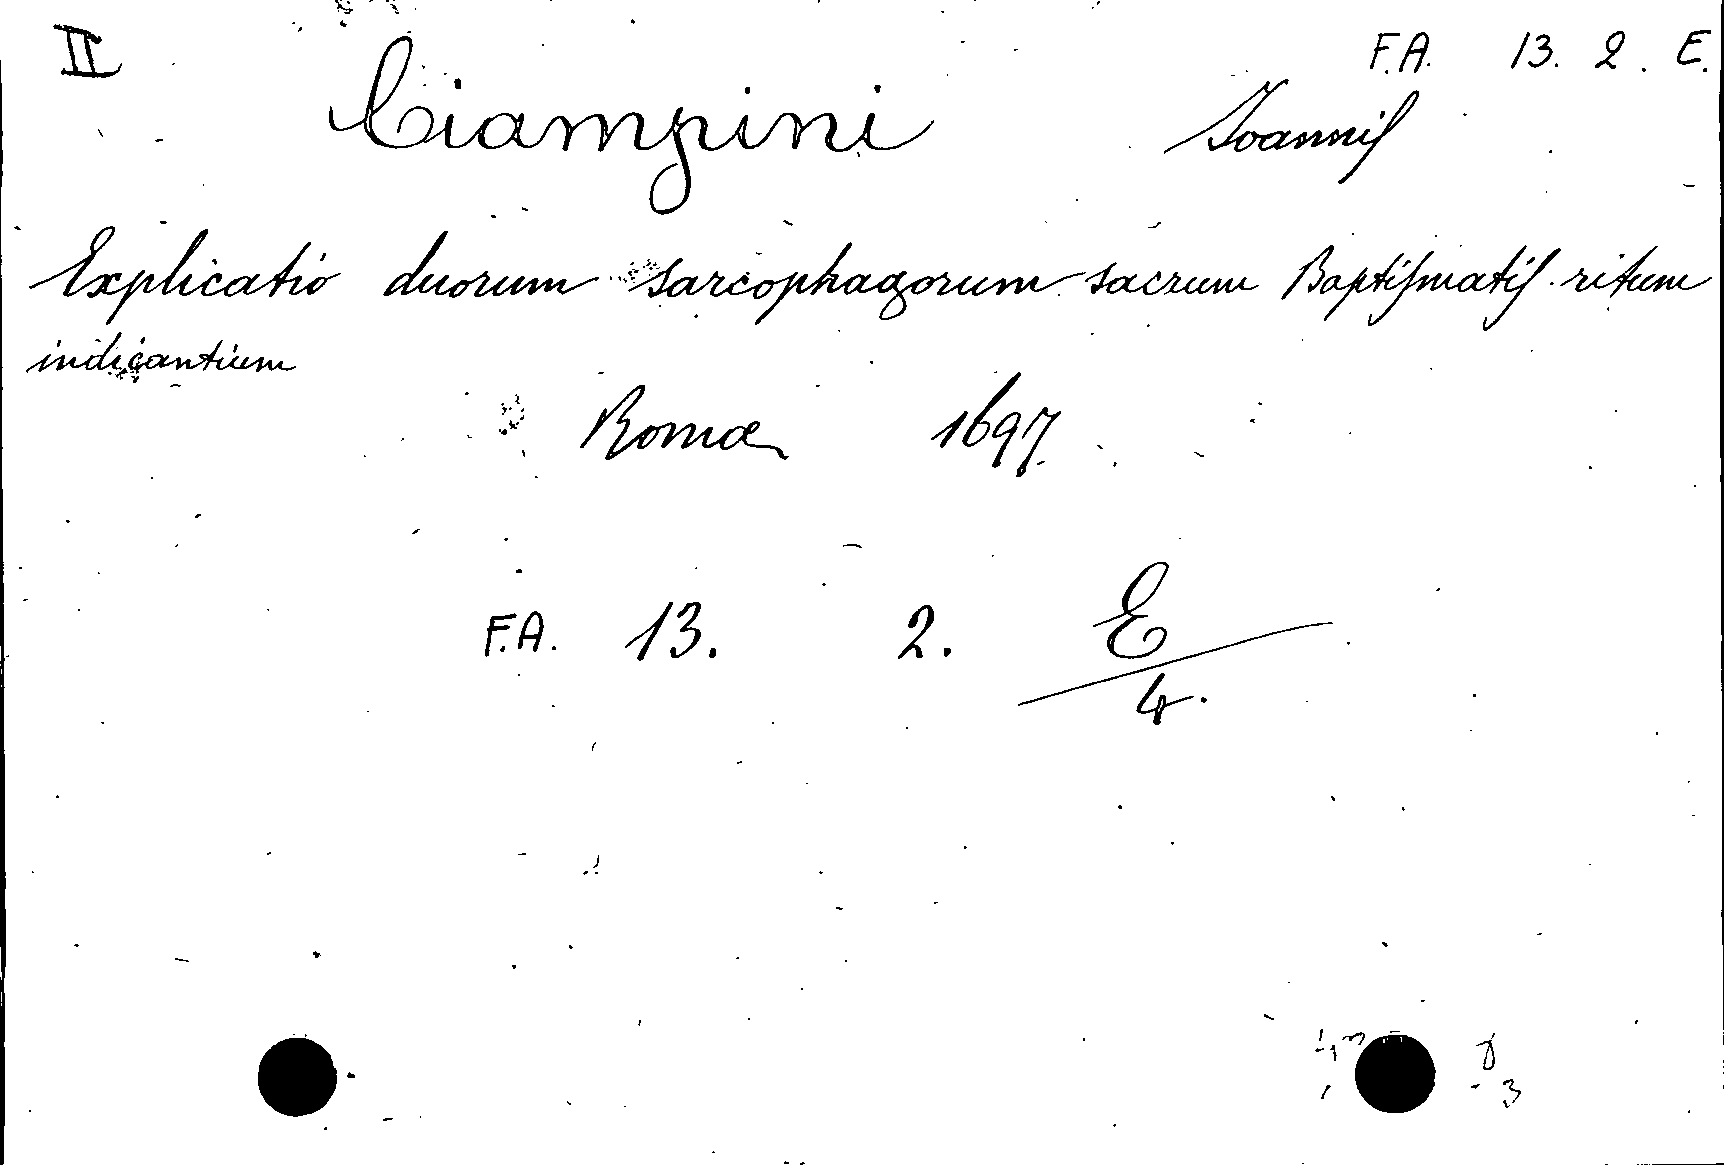 II F.A. 13. 2. E.
Ciampini Joannis
Explicatio duorum sarcophagorum sacrum Baptismatis ritum
indicantium
Romæ 1697.
F.A. 13. 2. E
4.